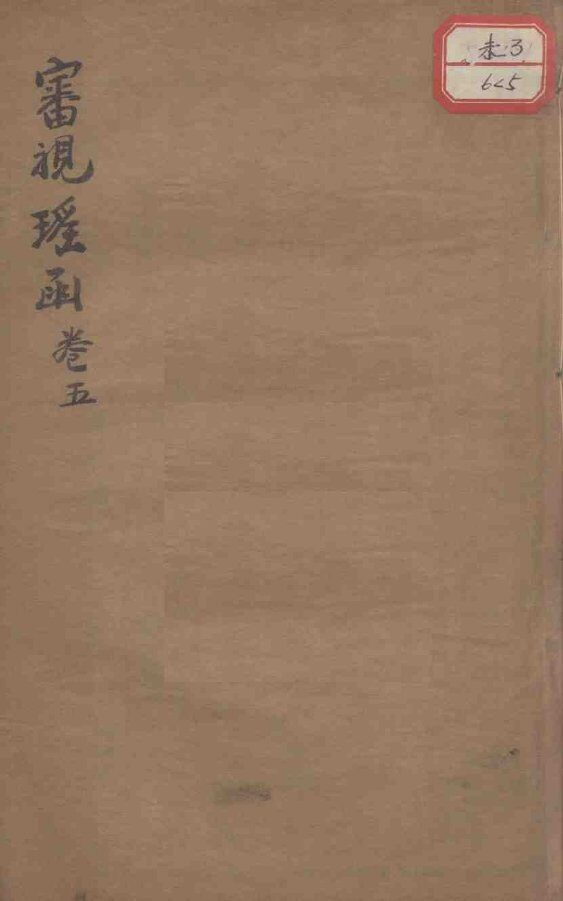 審視瑤函卷五
未3
625